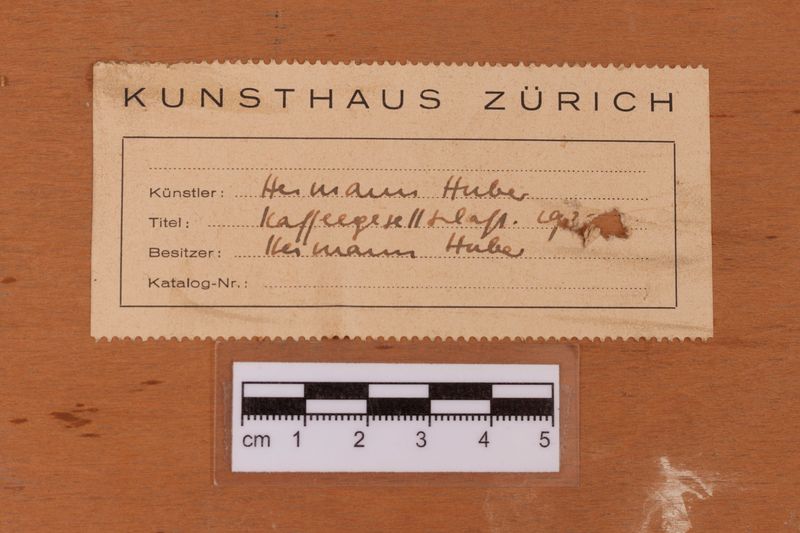 KUNSTHAUS ZÜRICH
Künstler: Hermann Huber
Titel: Kaffeegesellschaft.
Besitzer: Hermann Huber
Katalog-Nr.:
cm 1 2 3 4 5